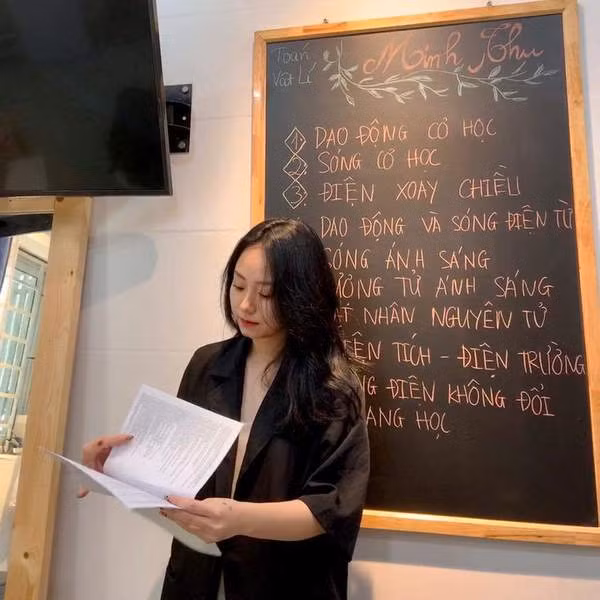 Toán
Vật Lí
Minh Thu
1 DAO ĐỘNG CƠ HỌC
2 SÓNG CƠ HỌC
3 ĐIỆN XOAY CHIỀU
DAO ĐỘNG VÀ SÓNG ĐIỆN TỪ
SÓNG ÁNH SÁNG
TỬ ÁNH SÁNG
NHÂN NGUYÊN TỬ
TÍCH - ĐIỆN TRƯỜNG
ĐIỆN KHÔNG ĐỔI
HỌC